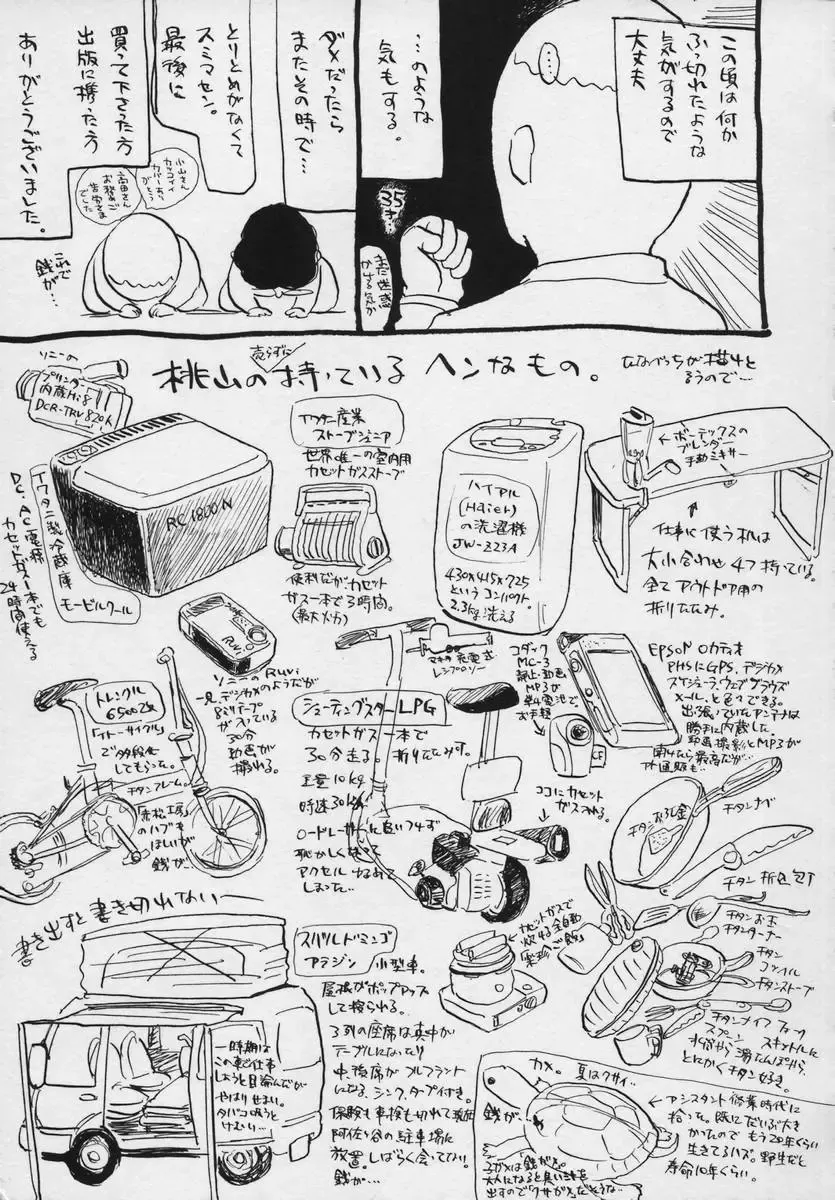 この頃は何か
ふっ切れたような
気がするので
大丈夫
…のような
気もする。
35才…
ダメだったら
またその時で…
とりとめがなくて
スミマセン。
最後に
買って下さった方
出版に携った方
ありがとうございました。
小山さん
カッコイイ
カバーあり
がとう
高田さん
お務めご
苦労さま
でした
これで
銭が…
桃山の売らずに持っているヘンなもの。
ソニーの
プリンター
内蔵Hi8
DCR-TRV820K
イワタニ製冷蔵庫
モービルクール
DC、AC電源
カセットガス一本でも
24時間使える
RC1800N
イワタニ産業
ストーブジュニア
世界唯一の室内用
カセットガスストーブ
便利だがカセット
ガス一本で3時間。
(最大火力)
ハイアル
(Haier)
の洗濯機
JW-Z23A
430×415×725
というコンパクト。
2.3kg洗える
←ボーテックスの
ブレンダー
手動ミキサー
仕事に使う机は
大小合わせ4つ持っている。
全てアウトドア用の
折りたたみ。
Ruvi
ソニーのRuvi
一見、デジカメのようだが
8ミリテープ
が入っている
30分
動画が
撮れる。
トレンクル
6500改
「イトーサイクル」
で多段化
してもらった。
チタンフレーム。
「赤松工房」
のハブも
ほしいが
銭が…
シューティングスターLPG
カセットガス一本で
30分走る。折りたたみ可。
重量10kg
時速30km
ロードレーサーに良いつす
恥かしくなって
アクセルゆるめて
しまった…
マキタ充電式
レシプロソー
コダック
MC-3
静止・動画
MP3が
単4電池で
お手軽
CF
ココにカセット
ガス入れる。
EPSON ロカティオ
PHSにGPS、デジカメ
スケジューラ、ウェブブラウズ
メールと色々できる。
出っ張っていたアンテナは
勝手に内蔵した。
動画撮影とMP3が
チタンナベ
チタンおろし金
チタン折込包丁
チタンお玉
チタンターナー
チタン
コッヘル
チタンストーブ
チタンナイフ フォーク
スプーン スキットルに
水筒から湯たんぽから、
とにかくチタン好き。
書き出すと書き切れない──
スバルドミンゴ
アラジン 小型車。
屋根がポップアップ
して寝られる。
3列の座席は真中が
テーブルになったり
中・後席がフルフラット
になる、シンク、タープ付き。
保険も車検も切れて現在
阿佐ヶ谷の駐車場に
放置。しばらく会ってない。
銭が…
一時期は
この車で仕事
しようと目論んだが
やはりせまい。
タバコ吸うと
けむい…
カセットガスで
炊ける全自動
カメ。
夏はクサイ…
銭が…
アシスタント修業時代に
拾った。既にだいぶ大き
かったので もう20年くらい
生きてるハズ。野生だと
寿命10年くらい。
子ガメは銭がメ。
大人になると臭い汁を
出すので「クサガメ」だそうな…